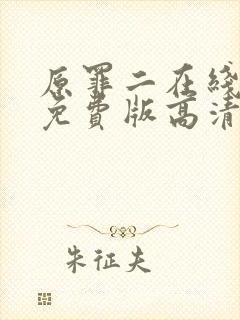 原罪二在线
免费版高清
朱征夫